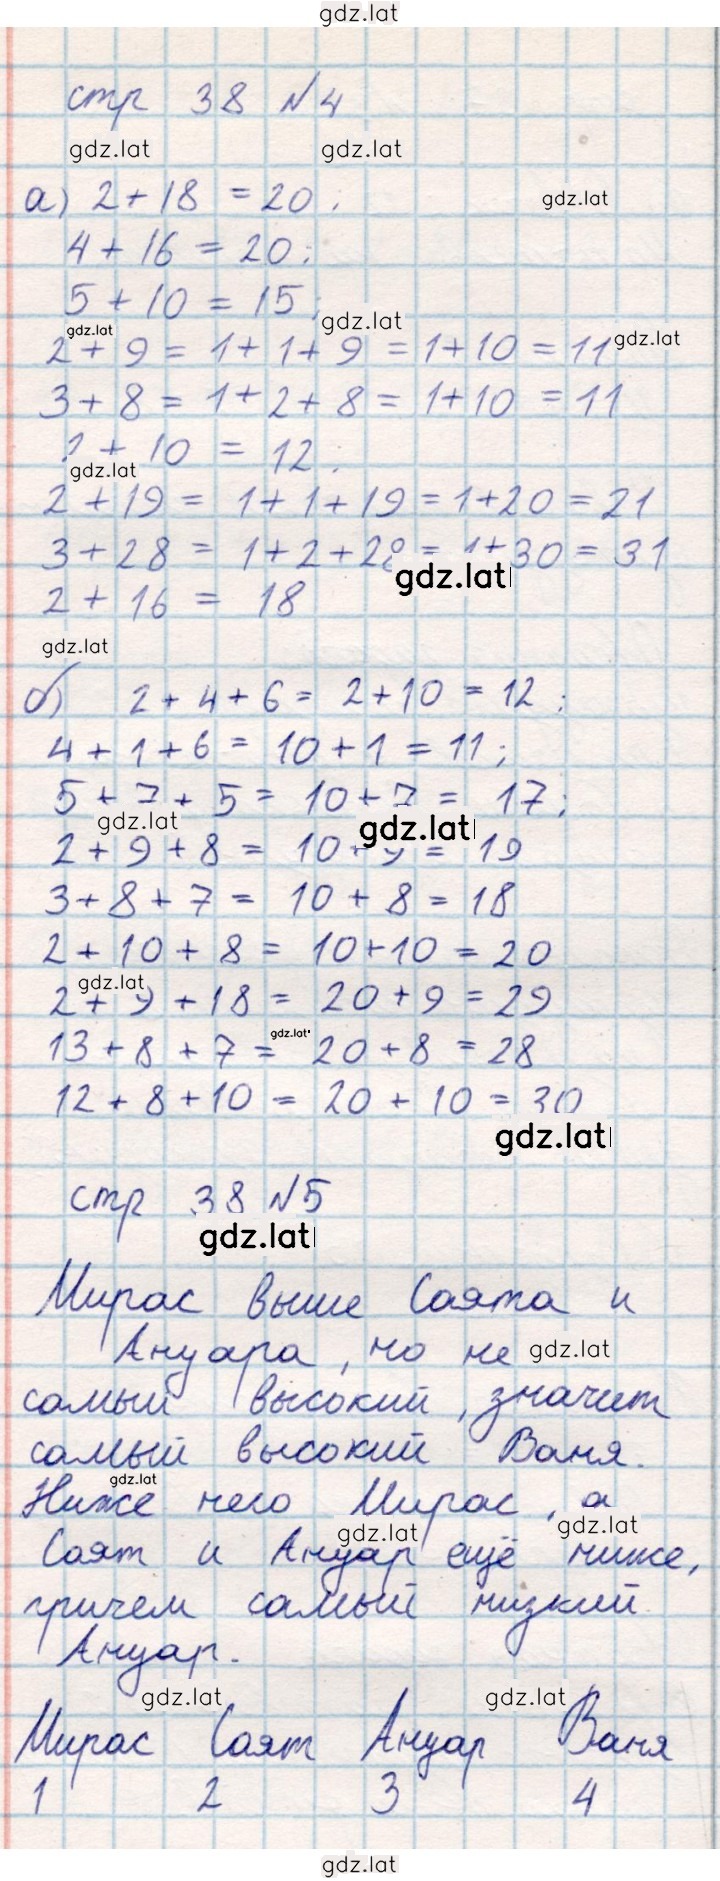 gdz.lat
стр 38 №4
gdz.lat gdz.lat
а) 2+18 = 20; gdz.lat
4 + 16 = 20;
5 + 10 = 15; gdz.lat
gdz.lat gdz.lat
2 + 9 = 1+1+9 = 1+10 = 11
3 + 8 = 1+2+8 = 1+10 = 11
+ 10 = 12;
gdz.lat
2 + 19 = 1+1+19 = 1+20 = 21
3 + 28 = 1+2+28 = 1+30 = 31
gdz.lat
2 + 16 = 18
gdz.lat
б) 2+4+6 = 2+10 = 12;
4+1+6 = 10+1 = 11;
5+7+5 = 10+7 = 17;
gdz.lat gdz.lat
2+9+8 = 10+9 = 19
3+8+7 = 10+8 = 18
2+10+8 = 10+10 = 20
gdz.lat
2+9+18 = 20+9 = 29
gdz.lat
13+8+7 = 20+8 = 28
12+8+10 = 20+10 = 30
gdz.lat
стр 38 №5
gdz.lat
Мирас выше Саята и
Ануара, но не gdz.lat
самый высокий, значит
самый высокий Ваня.
gdz.lat
Ниже него Мирас, а
gdz.lat gdz.lat
Саят и Ануар ещё ниже,
причем самый низкий
Ануар.
gdz.lat gdz.lat
Мирас Саят Ануар Ваня
1 2 3 4
gdz.lat